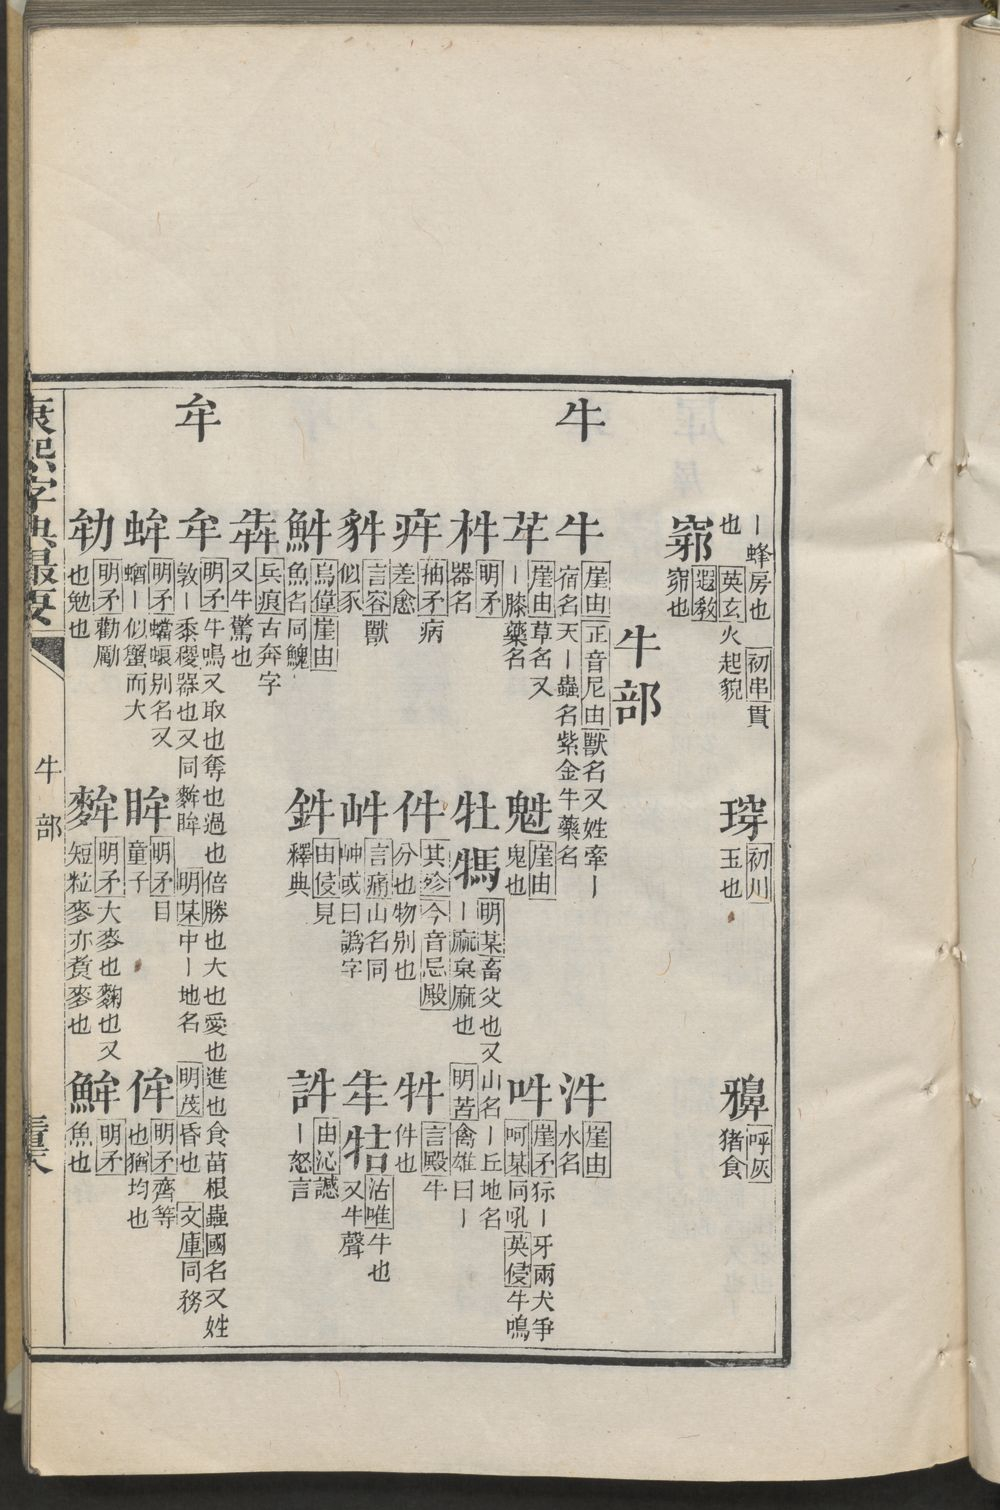 ｜蜂房也 初串貫
也 英玄火起貌
琗 初川玉也
鴉 呼灰猪食
遐教窮也
牛部
牛
牛 崖由正音尼由獸名又姓牽｜
宿名天｜蟲名紫金牛藥名
汼 崖由水名
芉 崖由草名又
｜膝藥名
鬽 崖由鬼也
吽 崖矛狋｜牙兩犬爭
呵某同吼英侵牛鳴
杵 明矛器名
牡𤚩 明某畜父也又山名｜丘地名
｜麻枲麻也 明苦禽雄曰｜
痄 抽矛病
差愈
件 其殄今音忌殿
分也物別也
牪 言殿牛
件也
言容獸
似豕
岞 言痛山名同
或曰譌字
牟牯 沽唯牛也
又牛聲
烏偉崖由
魚名同鮠
鉡 由侵見
釋典
許 由沁讖
｜怒言
犇 兵痕古奔字
又牛驚也
牟
牟 明矛牛鳴又取也奪也過也倍勝也大也愛也進也食苗根蟲國名又姓
敦｜黍稷器也又同麰眸 明某中｜地名 明茂昏也 文庫同務
蛑 明矛蟷蠰別名又
蝤｜似蟹而大
眸 明矛目
童子
侔 明矛齊等
也猶均也
劺 明矛勸勵
也勉也
麰 明矛大麥也麴也又
短粒麥亦賁麥也
鮮 明矛
魚也
康熙字典最要
牛部